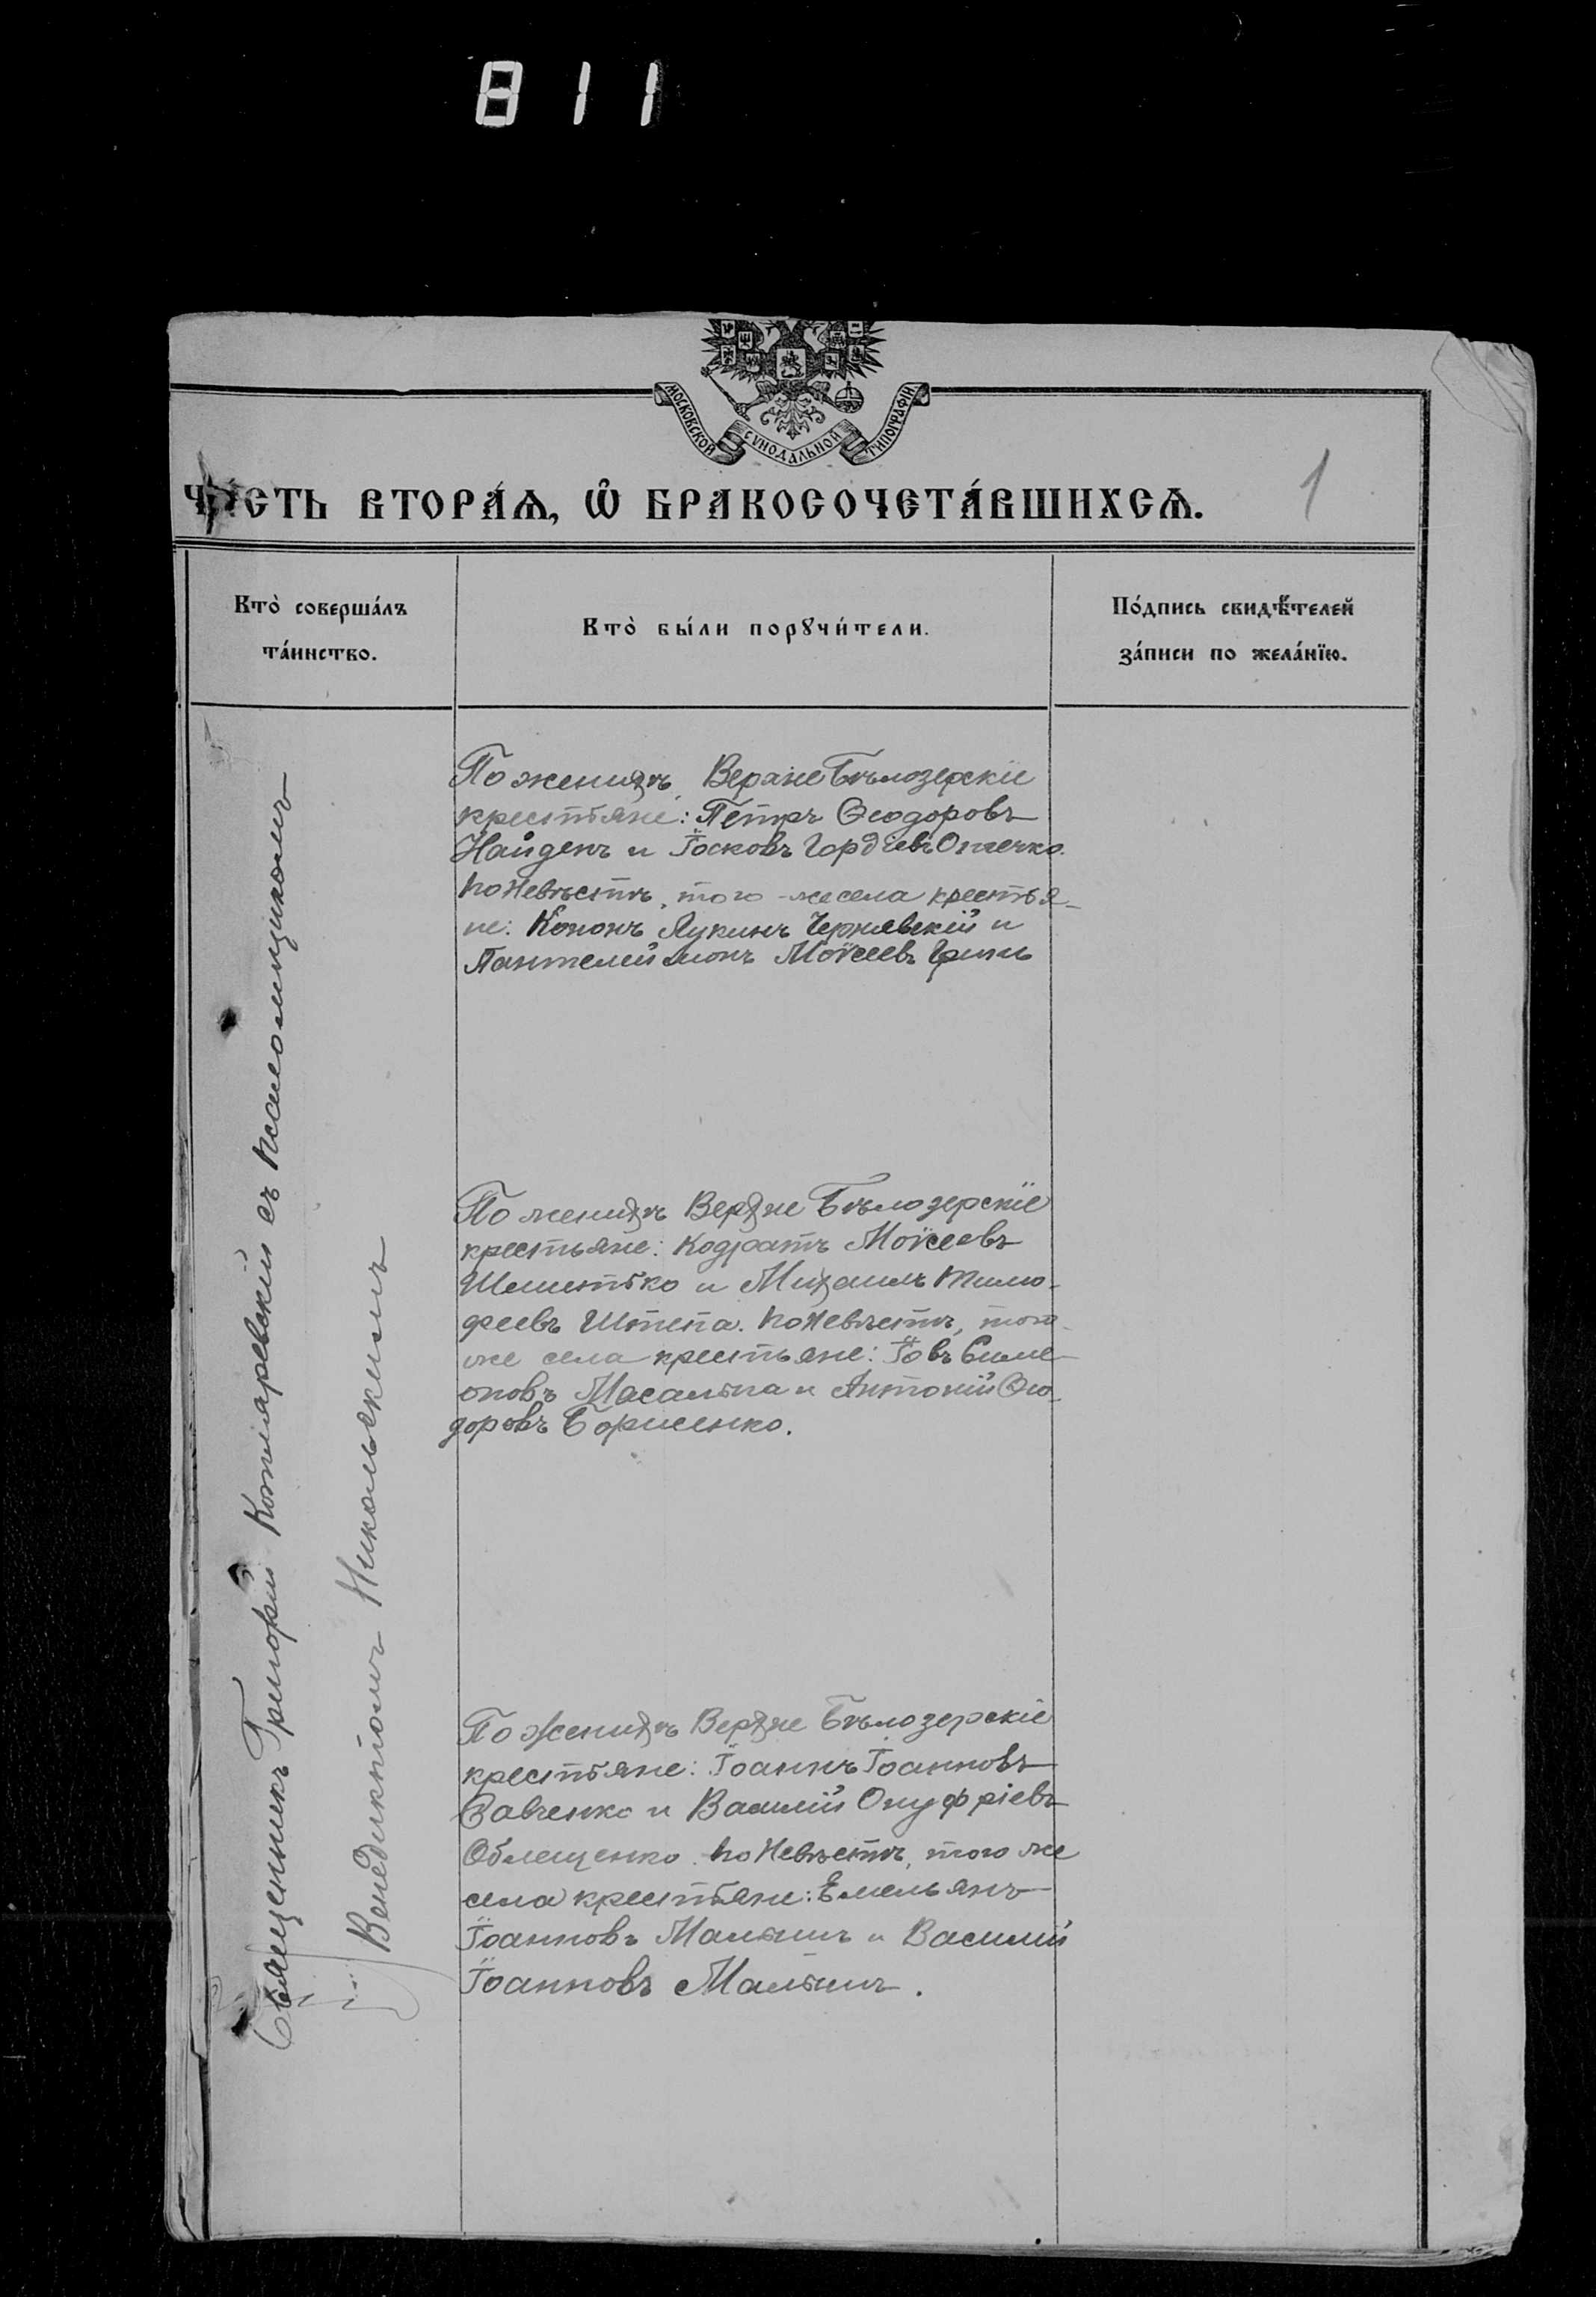 811
МОСКОВСКОЙ СѴНОДАЛЬНОЙ ТИПОГРАФІИ
ЧА́СТЬ ВТОРА́Ѧ, Ѽ БРАКОСОЧЕТА́ВШИХСѦ.
1
Кто̀ соверша́лъ
та́инство.
Кто̀ бы́ли порꙋчи́тели.
По́дпись свидѣ́телей
за́писи по жела́нїю.
Священникъ Григорій Котляревскій съ псаломщикомъ
Венедиктомъ Никольскимъ
По женихѣ, Верхне Бѣлозерскіе
крестьяне: Петръ Ѳеодоровъ
Найденъ и Іаковъ Гордіевъ
по Невѣстѣ, того-же села крестья-
не: Кононъ Лукинъ Чернявскій и
Пантелеймонъ Моѵсеевъ
По женихѣ Верхне Бѣлозерскіе
крестьяне: Кодратъ Моѵсеевъ
Шеметько и Михаилъ Тимо-
феевъ Штепа. по Невѣстѣ, того-
же села крестьяне: Іовъ Симе-
оновъ Масалыга и Антоній Ѳео-
доровъ Борисенко.
По Женихѣ Верхне Бѣлозерскіе
крестьяне: Іоаннъ Іоанновъ
Савченко и Василій Онуфріевъ
Облещенко. по Невѣстѣ, того же
села крестьяне: Емельянъ
Іоанновъ Малышъ и Василій
Іоанновъ Малышъ.